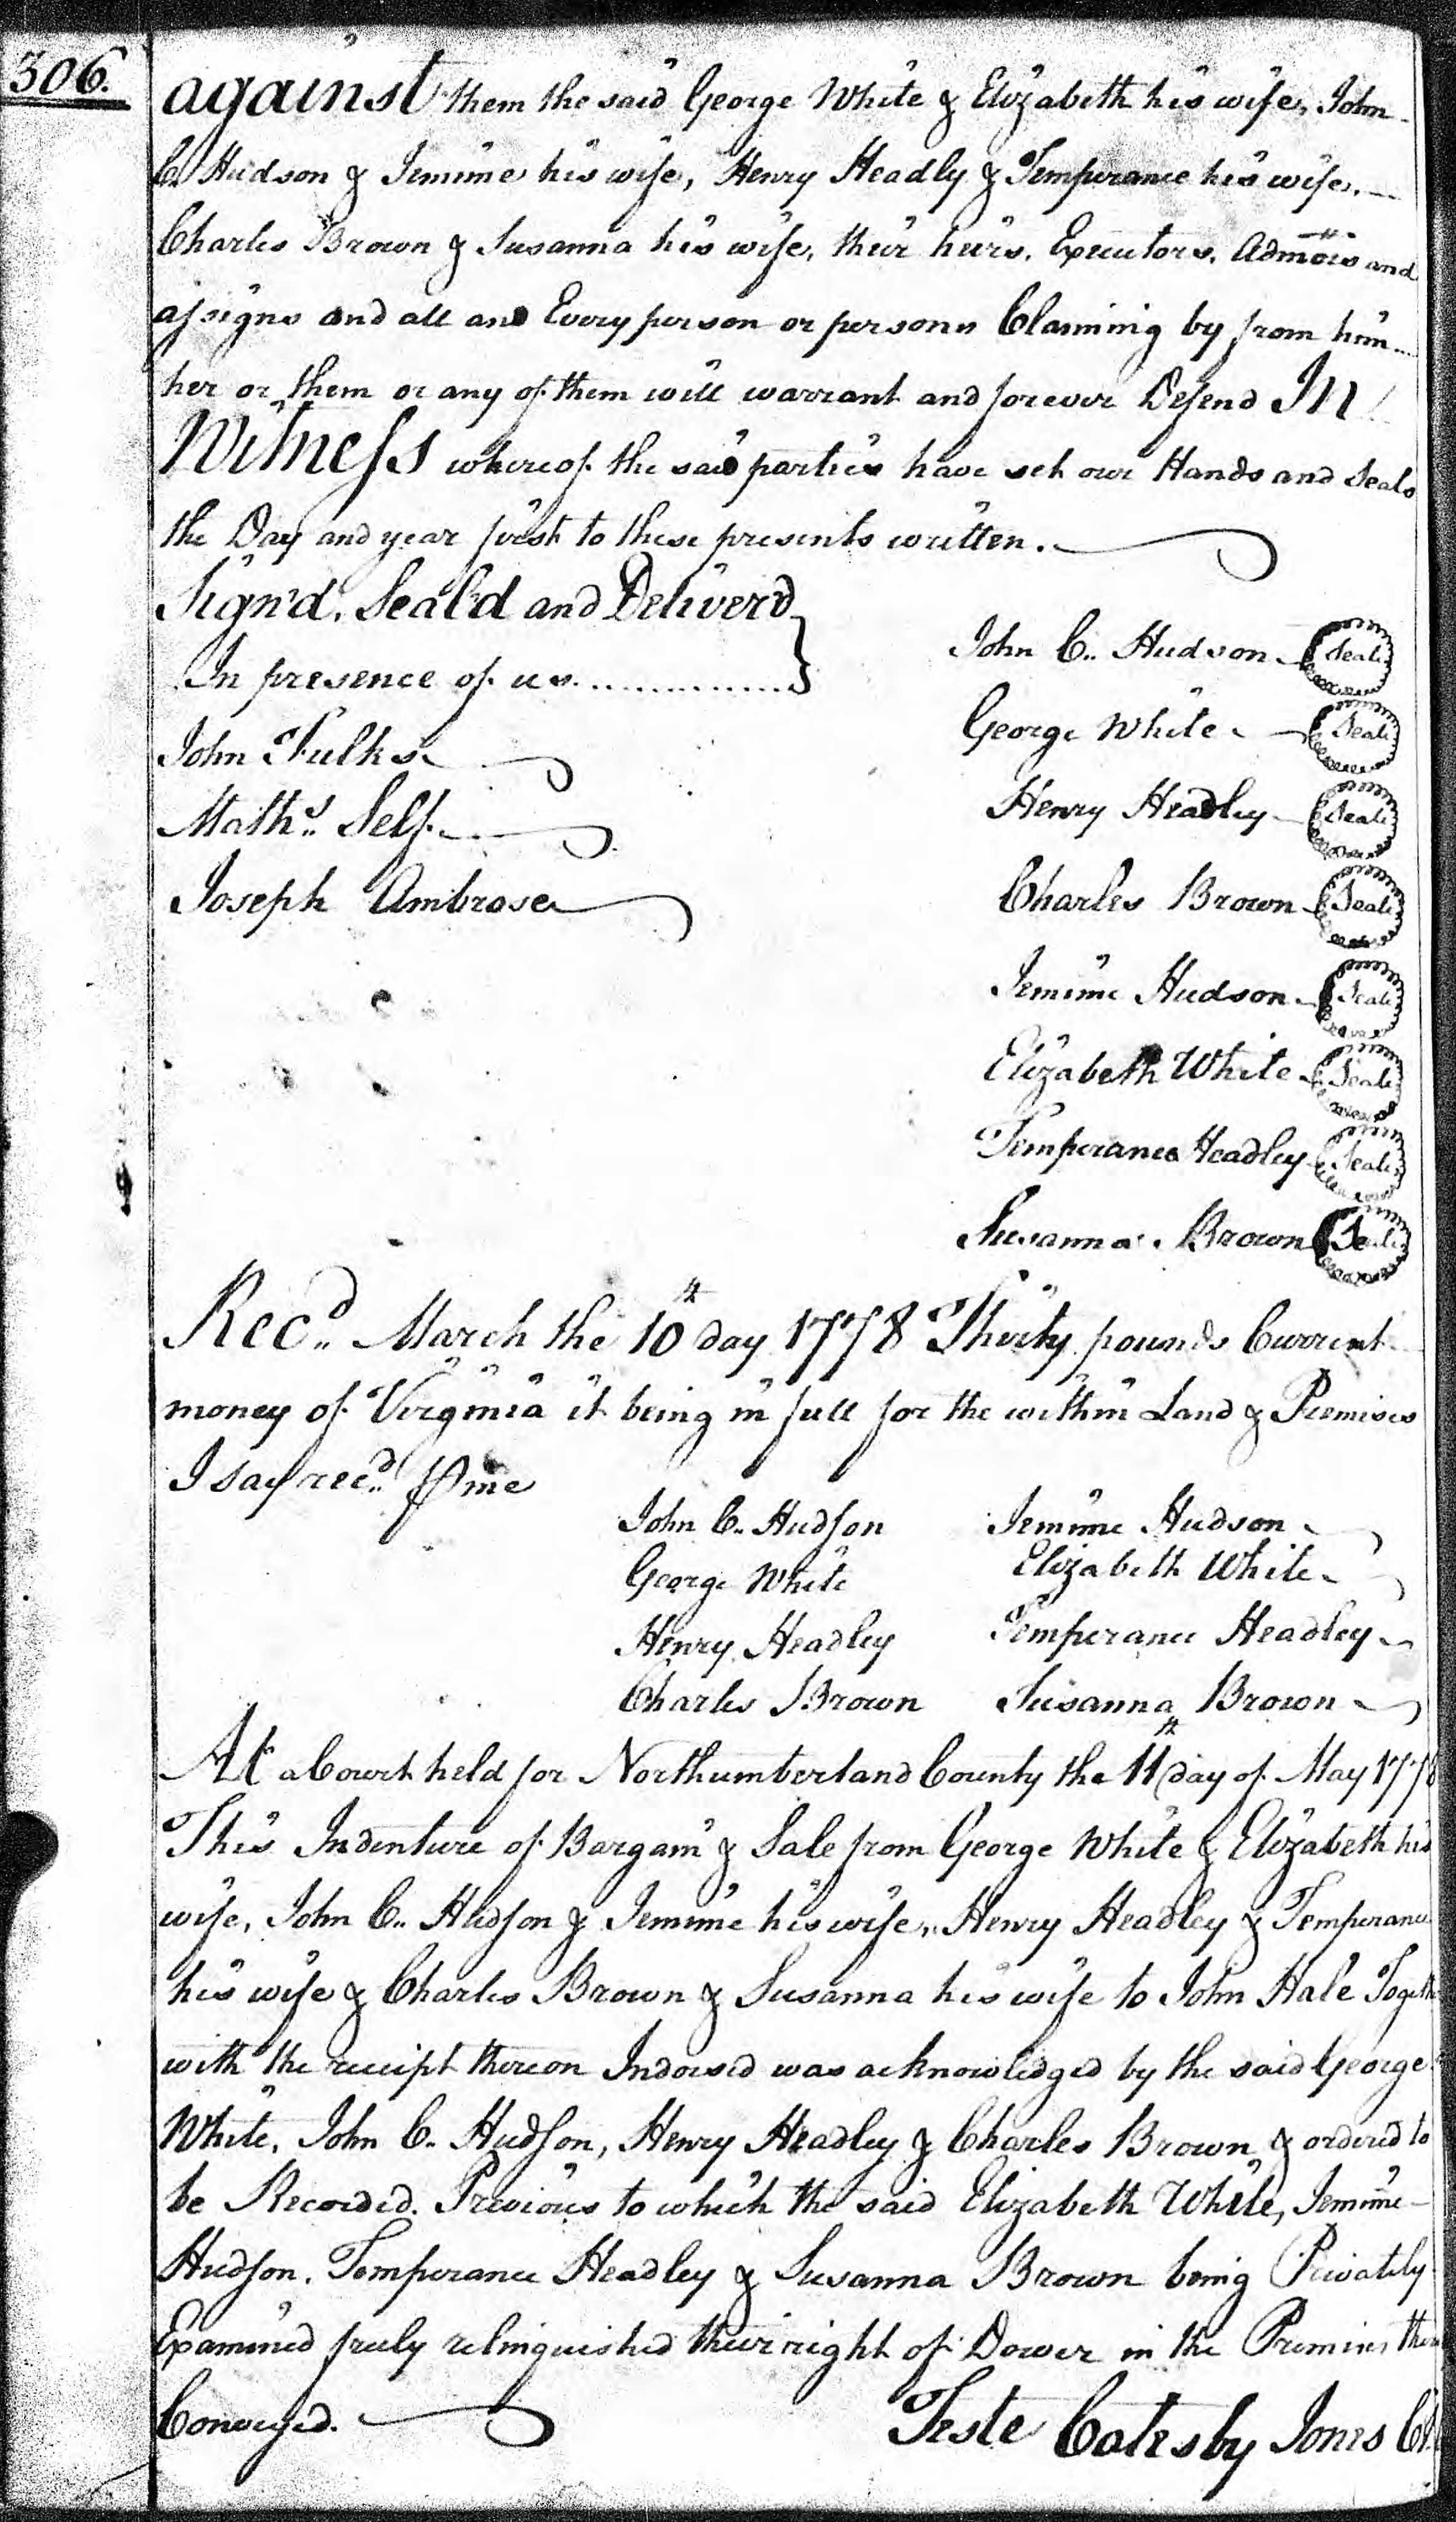 306.
against them the said George White & Elizabeth his wife, John
C. Hudson & Jemime his wife, Henry Headly & Temperance his wife,
Charles Brown & Susanna his wife, their heirs, Executors, Admors and
assigns and all and Every person or persons Claiming by from him
her or them or any of them will warrant and forever Defend In
Witness whereof the said parties have set our Hands and Seals
the Day and year first to these presents written.
Sign'd, Seal'd and Deliver'd
In presence of us
John C. Hudson Seal
John Fulks
George White Seal
Maths. Self
Henry Headley Seal
Joseph Ambrose
Charles Brown Seal
Jemime Hudson Seal
Elizabeth White Seal
Temperance Headley Seal
Susanna Brown Seal
Recd. March the 10th day 1778 Thirty pounds Current
money of Virginia it being in full for the within Land & Premises
I say recd. ⅌ me
John C. Hudson Jemime Hudson
George White Elizabeth White
Henry Headley Temperance Headley
Charles Brown Susanna Brown
At a Court held for Northumberland County the 11th day of May 1778
This Indenture of Bargain & Sale from George White & Elizabeth his
wife, John C. Hudson & Jemime his wife, Henry Headley & Temperance
his wife & Charles Brown & Susanna his wife to John Hale Togeth
with the receipt thereon Indorsed was acknowledged by the said George
White, John C. Hudson, Henry Headley & Charles Brown & ordered to
be Recorded. Previous to which the said Elizabeth White, Jemime
Hudson, Temperance Headley & Susanna Brown being Privately
Examined freely relinquished their right of Dower in the Premises
Conveyed.
Teste Catesby Jones